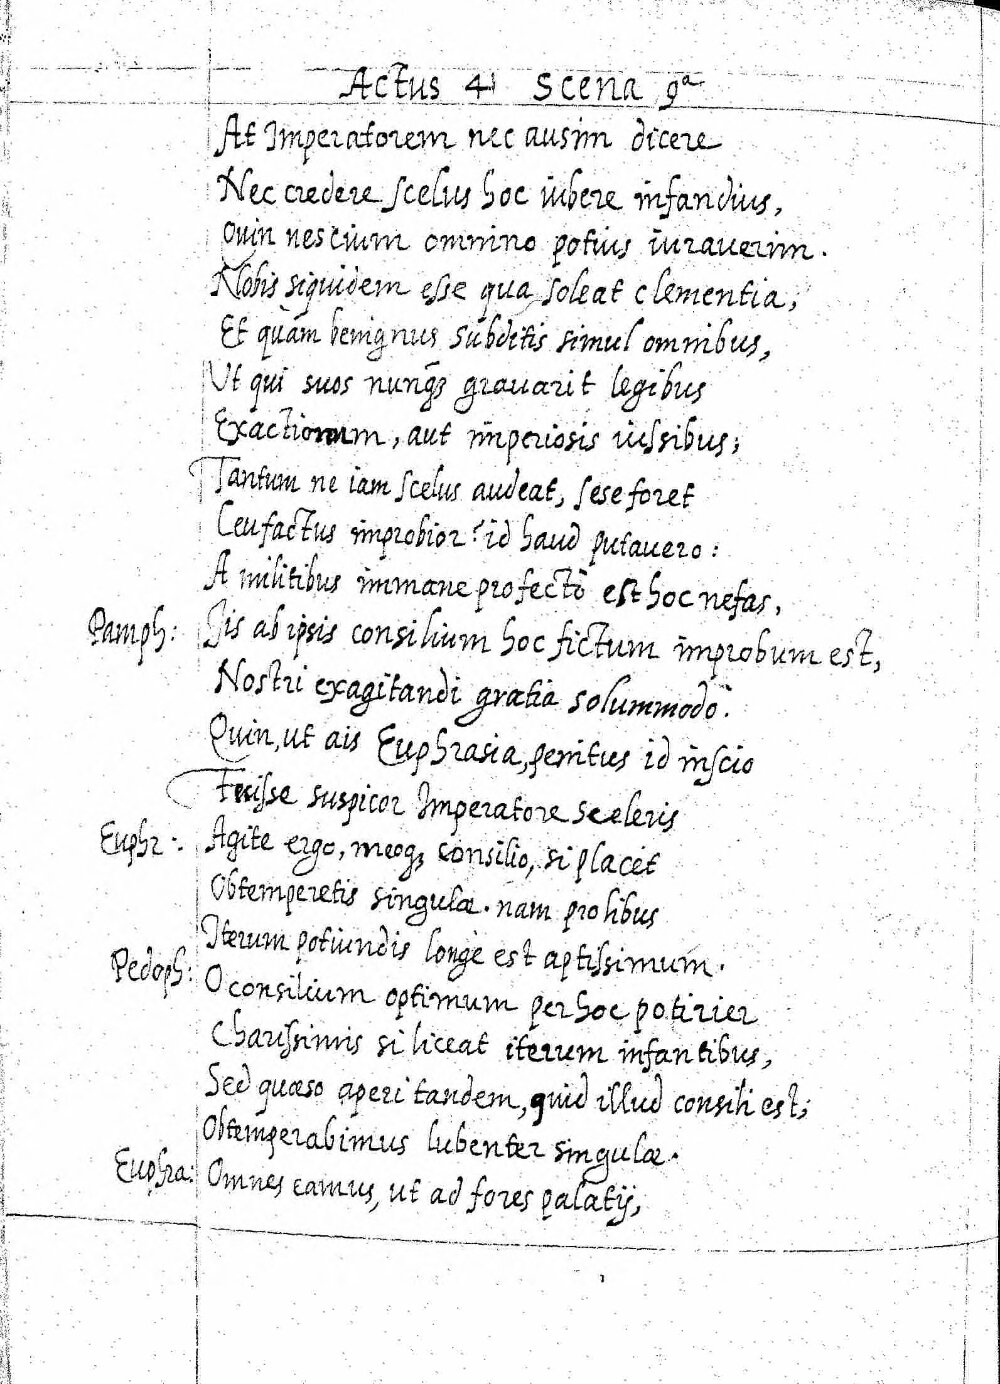 Actus 4i Scena 9a
At Imperatorem nec ausim dicere
Nec credere scelus hoc iubere infandius,
Quin nescium omnino potius iurauerim.
Nobis siquidem esse qua soleat clementia,
Et quàm benignus subditis simul omnibus,
Ut qui suos nunq̄ȝ grauarit legibus
Exactionum, aut imperiosis iussibus;
Tantum ne iam scelus audeat, sese foret
Ceu factus improbior? id haud putauero:
A militibus immane profectò est hoc nefas,
Pamph: Iis ab ipsis consilium hoc fictum improbum est,
Nostri exagitandi gratia solummodò.
Quin, ut ais Euphrasia, penitus id inscio
Fuisse suspicor Imperatore sceleris
Euphr:. Agite ergo, meoqȝ consilio, si placet
Obtemperetis singulæ. nam prolibus
Iterum potiundis longè est aptissimum.
Pedoph: O consilium optimum per hoc potirier
Charissimis si liceat iterum infantibus,
Sed quæso aperi tandem, quid illud consili est;
Obtemperabimus lubenter singulæ.
Euphra: Omnes eamus, ut ad fores palatij,